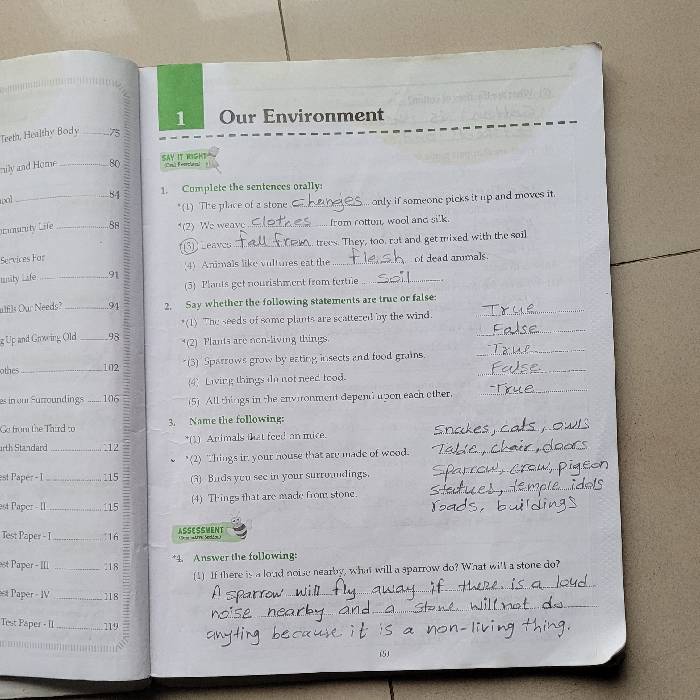 Teeth, Healthy Body 75
and Home 80
84
Life 88
Services For
Life 91
Our Needs? 94
Up and Growing Old 98
102
in our Surroundings 106
Go from the Third to
Standard 112
Paper - I 115
Paper - II 115
Test Paper - I 116
Paper - III 118
Paper - IV 118
Test Paper - II 119
1 Our Environment
SAY IT RIGHT
1. Complete the sentences orally:
*(1) The place of a stone changes only if someone picks it up and moves it.
*(2) We weave clothes from cotton, wool and silk.
(3) Leaves fall from trees. They, too, rot and get mixed with the soil.
(4) Animals like vultures eat the flesh of dead animals.
(5) Plants get nourishment from fertile soil.
2. Say whether the following statements are true or false:
*(1) The seeds of some plants are scattered by the wind. True
*(2) Plants are non-living things. False
*(3) Sparrows grow by eating insects and food grains. True
(4) Living things do not need food. False
(5) All things in the environment depend upon each other. True
3. Name the following:
*(1) Animals that feed on mice. Snakes, cats, owls
*(2) Things in your house that are made of wood. Table, chair, doors
(3) Birds you see in your surroundings. Sparrow, crow, pigeon
(4) Things that are made from stone. Statues, temple idols
roads, buildings
ASSESSMENT
*4. Answer the following:
(1) If there is a loud noise nearby, what will a sparrow do? What will a stone do?
A sparrow will fly away if there is a loud
noise nearby and a stone will not do
anyting because it is a non-living thing.
(5)